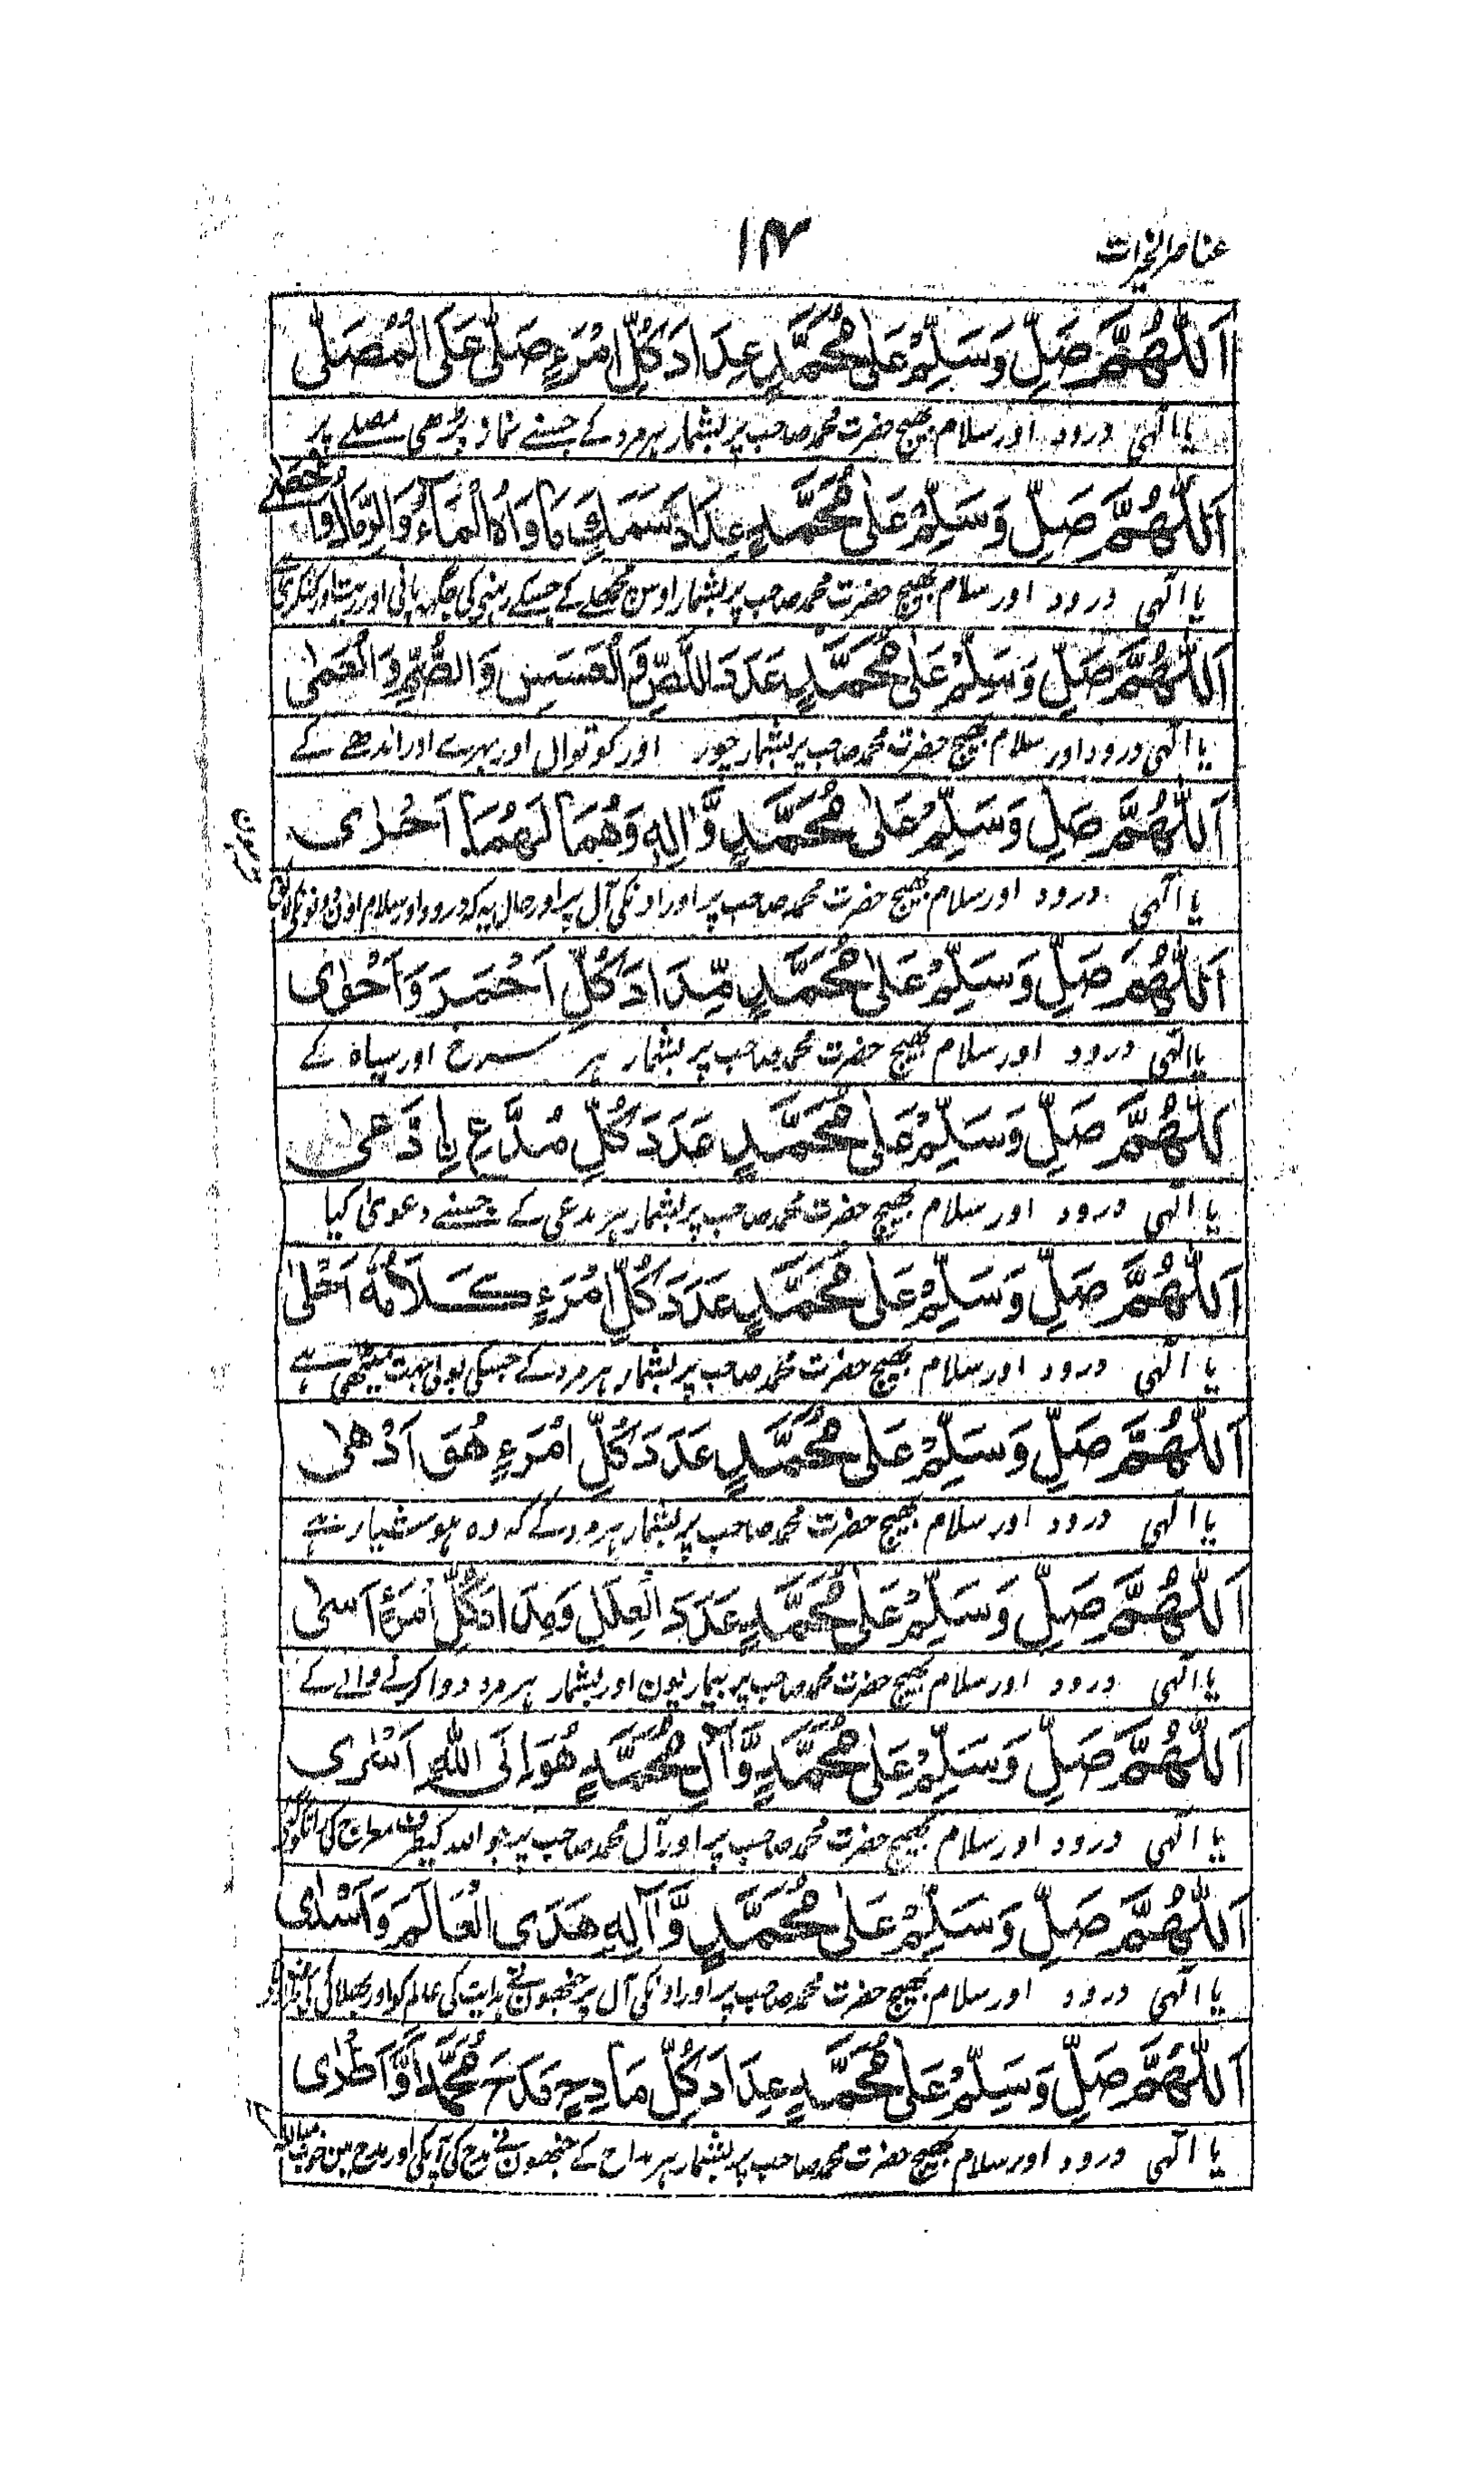 عناصر الخیرات
۱۴
اَللّٰهُمَّ صَلِّ وَسَلِّمْ عَلٰى مُحَمَّدٍ عِدَادَ كُلِّ امْرَءٍ صَلّٰى عَلَى الْمُصَلّٰى
یا الٰہی درود اور سلام بھیج حضرت محمد صاحب پر بشمار ہر مرد کے جسنے نماز پڑھی مصلے پر
اَللّٰهُمَّ صَلِّ وَسَلِّمْ عَلٰى مُحَمَّدٍ عِدَادَ سَمَكٍ مَاْوَاهُ الْمَآءُ وَالرِّمَالُ
یا الٰہی درود اور سلام بھیج حضرت محمد صاحب پر بشمار اوس مچھلے کے جسکے رہنے کی جگہ پانی اور ریت اور کنکر
اَللّٰهُمَّ صَلِّ وَسَلِّمْ عَلٰى مُحَمَّدٍ عَدَدَ اللِّصِّ وَالْعَسَسِ وَالصُّمِّ وَالْعَمٰى
یا الٰہی درود اور سلام بھیج حضرت محمد صاحب پر بشمار چور اور کوتوال اور بہرے اور اندھے کے
اَللّٰهُمَّ صَلِّ وَسَلِّمْ عَلٰى مُحَمَّدٍ وَّاٰلِهٖ وَهُمَا لَهُمَا اَحْرٰى
یا الٰہی درود اور سلام بھیج حضرت محمد صاحب پر اور اونکی آل پر اور حال یہ کہ درود اور سلام اون دونو
اَللّٰهُمَّ صَلِّ وَسَلِّمْ عَلٰى مُحَمَّدٍ مِّدَادَ كُلِّ اَحْمَرَ وَاَحْوٰى
یا الٰہی درود اور سلام بھیج حضرت محمد صاحب پر بشمار ہر سرخ اور سیاہ کے
اَللّٰهُمَّ صَلِّ وَسَلِّمْ عَلٰى مُحَمَّدٍ عَدَدَ كُلِّ مُدَّعٍ اِدَّعٰى
یا الٰہی درود اور سلام بھیج حضرت محمد صاحب پر بشمار ہر مدعی کے جسنے دعویٰ کیا
اَللّٰهُمَّ صَلِّ وَسَلِّمْ عَلٰى مُحَمَّدٍ عَدَدَ كُلِّ امْرَءٍ كَلَامُهٗ اَحْلٰى
یا الٰہی درود اور سلام بھیج حضرت محمد صاحب پر بشمار ہر مرد کے جسکی بولی بہت میٹھی ہے
اَللّٰهُمَّ صَلِّ وَسَلِّمْ عَلٰى مُحَمَّدٍ عَدَدَ كُلِّ امْرَءٍ هُوَ اَدْهٰى
یا الٰہی درود اور سلام بھیج حضرت محمد صاحب پر بشمار ہر مرد کے کہ وہ ہوشیار ہے
اَللّٰهُمَّ صَلِّ وَسَلِّمْ عَلٰى مُحَمَّدٍ عَدَدَ الْعِلَلِ وَمِدَادَ كُلِّ امْرَءٍ اَسٰى
یا الٰہی درود اور سلام بھیج حضرت محمد صاحب پر بیماریون اور بشمار ہر مرد دوا کرنے والے کے
اَللّٰهُمَّ صَلِّ وَسَلِّمْ عَلٰى مُحَمَّدٍ وَّاٰلِ مُحَمَّدٍ هُوَ اِلَى اللّٰهِ اَسْرٰى
یا الٰہی درود اور سلام بھیج حضرت محمد صاحب پر اور آل محمد صاحب پر جو اللہ کیطرف معراج کی رات
اَللّٰهُمَّ صَلِّ وَسَلِّمْ عَلٰى مُحَمَّدٍ وَّاٰلِهٖ هَدَى الْعَالَمَ وَاَسْدٰى
یا الٰہی درود اور سلام بھیج حضرت محمد صاحب پر اور اونکی آل پر جنھون نے ہدایت کی عالم کو اور بھلائی کی
اَللّٰهُمَّ صَلِّ وَسَلِّمْ عَلٰى مُحَمَّدٍ عِدَادَ كُلِّ مَادِحٍ مَدَحَ مُحَمَّدًا وَّاَطْرٰى
یا الٰہی درود اور سلام بھیج حضرت محمد صاحب پر بشمار ہر مداح کے جنھون نے مدح کی آپکی اور مدح مین خوب مبالغہ